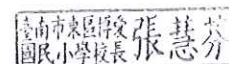 臺南市東區博愛
國民小學校長張慧芬